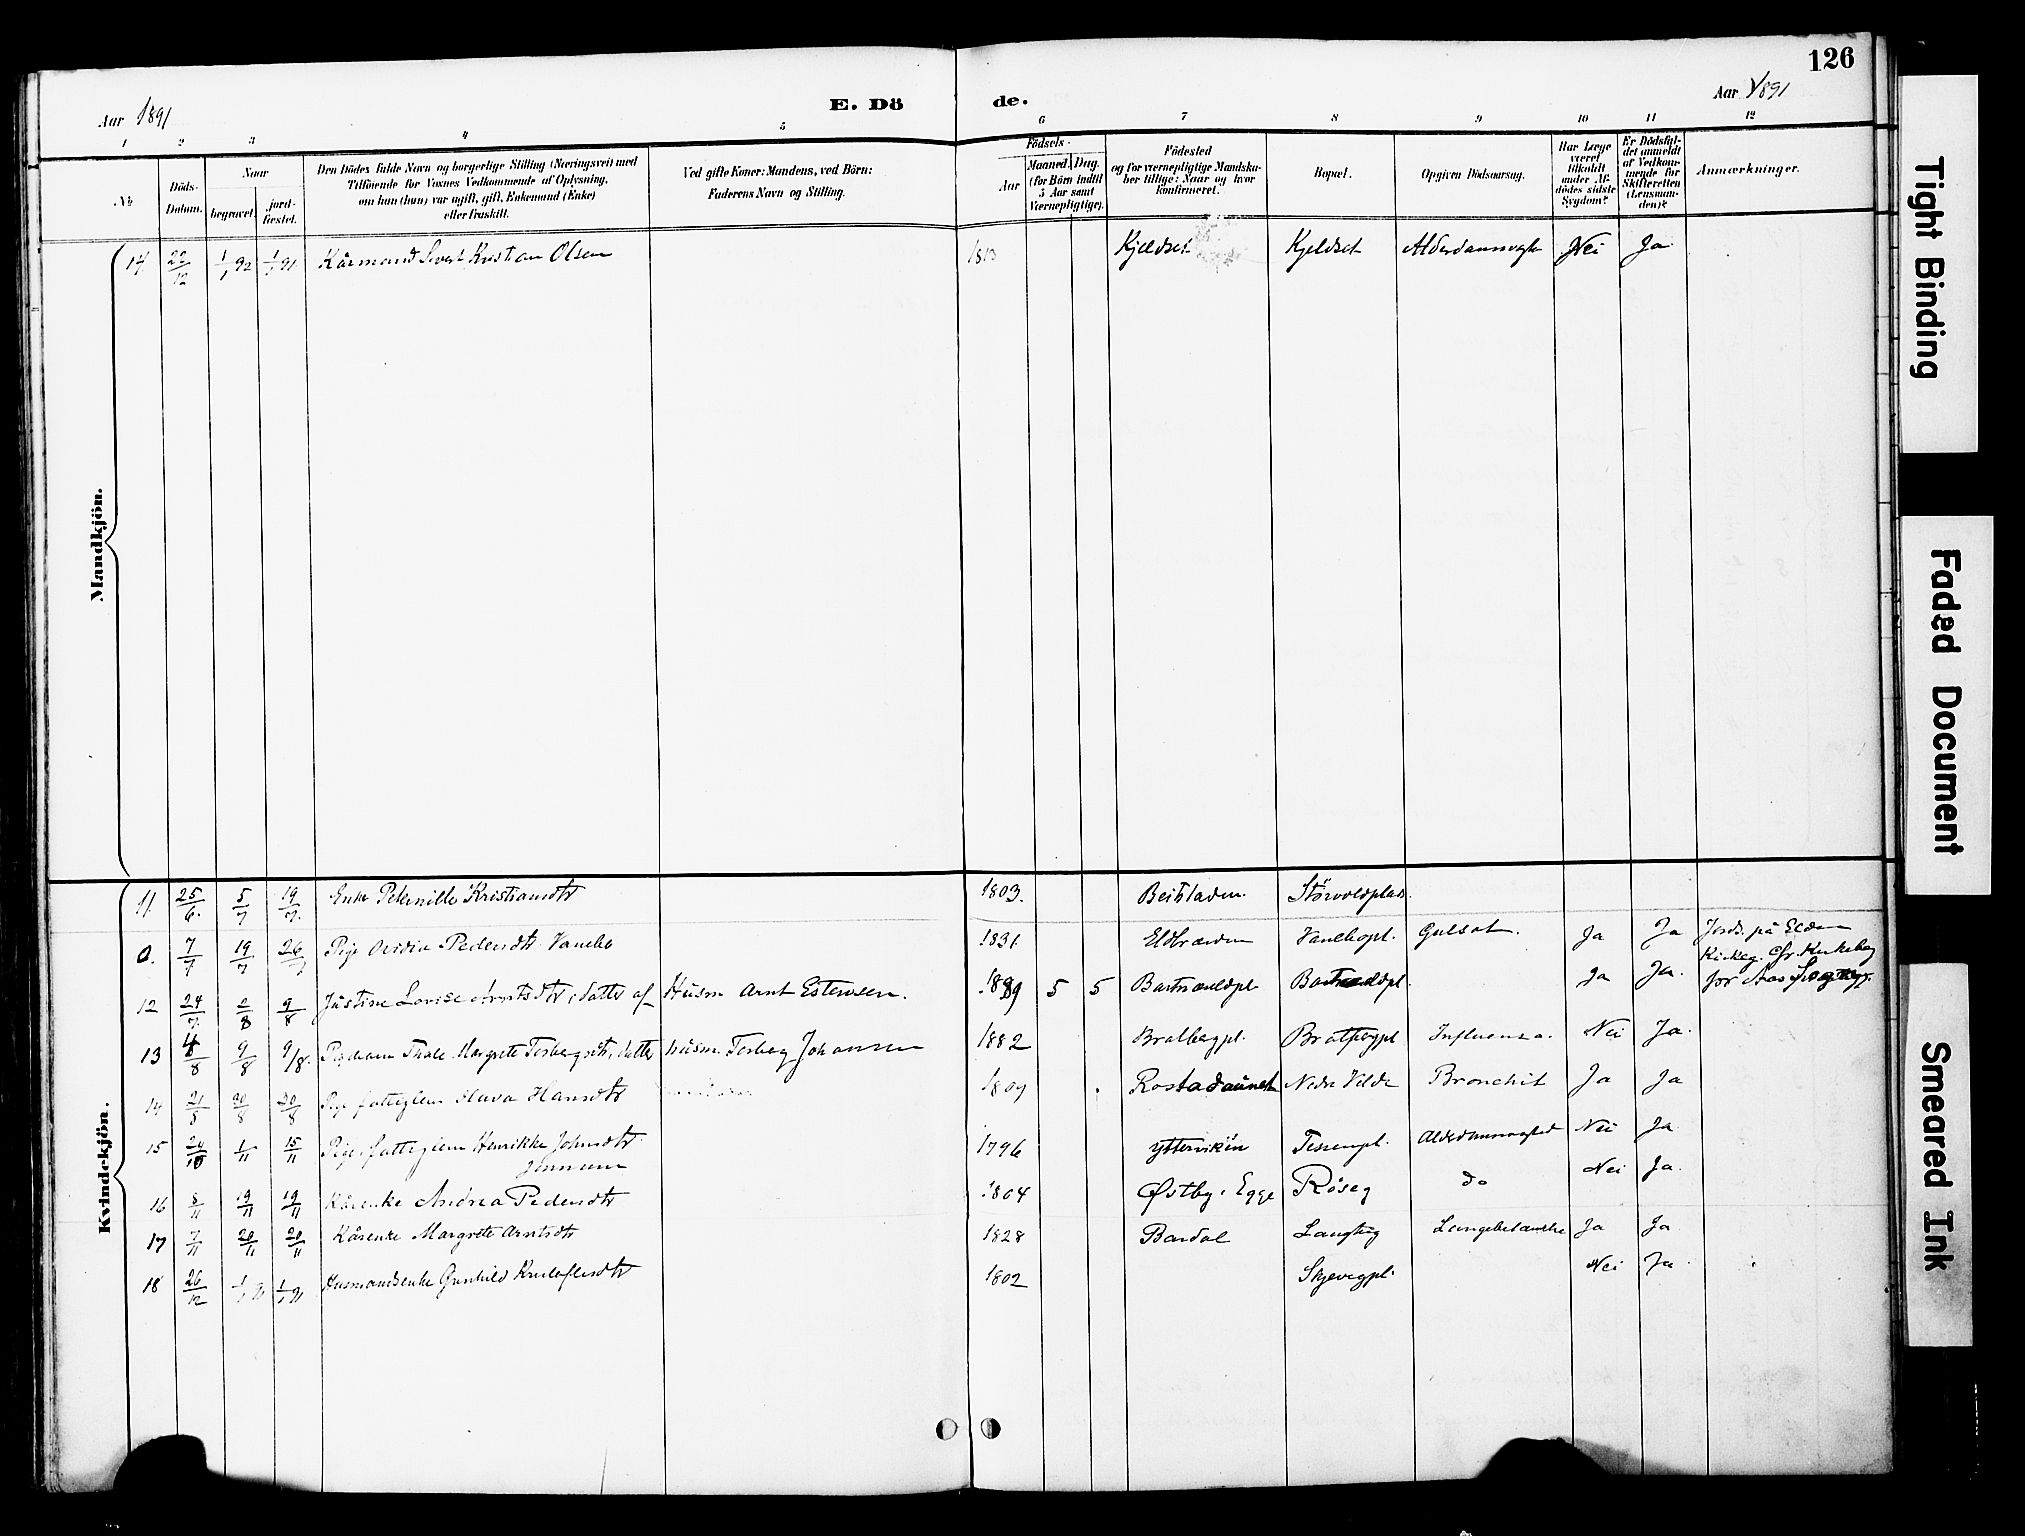 126
Aar 1891
E. Dö
de.
Aar 1891
1 2 3 4 5 6 7 8 9 10 11 12
No
Döds-Datum.
Naar
begravet.
jord-fæstet.
Den Dödes fulde Navn og borgerlige Stilling (Næringsvei) med
Tilföiende for Voxnes Vedkommende af Oplysning,
om han (hun) var ugift, gift, Enkemand (Enke)
eller fraskilt.
Ved gifte Koner: Mandens, ved Börn:
Faderens Navn og Stilling.
Födsels-
Aar
Maaned. Dag.
(for Börn indtil
5 Aar samt
Værnepligtige).
Födested
og for værnepligtige Mandska-
ber tillige: Naar og hvor
konfirmeret.
Bopæl.
Opgiven Dödsaarsag.
Har Læge
været
tilkaldt
under Af-
dödes sidste
Sygdom?
Er Dödsfal-
det anmeldt
af Vedkom-
mende for
Skifteretten
(Lensman-
den)?
Anmærkninger.
Mandkjön.
14 22/12 1/1 92 1/1 91 Kårmand Sivert Kristian Olsen 1813 Kjeldset Kjeldset Nei Ja
Kvindekjön.
11. 25/6. 5/7 19/7. Enke Peternille Kristiansdtr 1803. Beitstaden
0. 7/7 19/7 26/7 Pige Pedersdtr. Vanebo 1831. Vanebopl. Gulsot. Ja Ja Jords. på Elden
Kirkeg. Cfr. Kirkebog
for Aas Sogn
12 24/7 2/8 9/8 Justine Lovise Arntsdtr, datter af Husm Arnt Estensen. 1889 5 5 Ja Ja.
13 4/8 9/8 9/8. Thale Margrete Torbergsdtr, datter husm. Torberg Johansen 1882 Influenza. Nei Ja.
14 21/8 30/8 30/8 Pige fattiglem Hansdtr 1809 Rostadaunet Nedre Velde Bronchit Ja Ja
15 20/10 1/11 15/11 Pige, fattiglem Henrikke Johnsdtr. 1796 Yttervikin Tessempl. Nei Ja
16 8/11 19/11 19/11 Kårenke Andrea Pedersdtr 1804 Østby, Egge Røseg do Nei Ja.
17 7/11 20/11 20/11 Kårenke Margrete Arntsdtr 1828 Bardal Langstig Lungebetændelse Ja Ja
18 26/12 Husmandsenke Gunhild 1802 Skjevegpl. Nei Ja.
Tight Binding
Faded Document
Smeared Ink